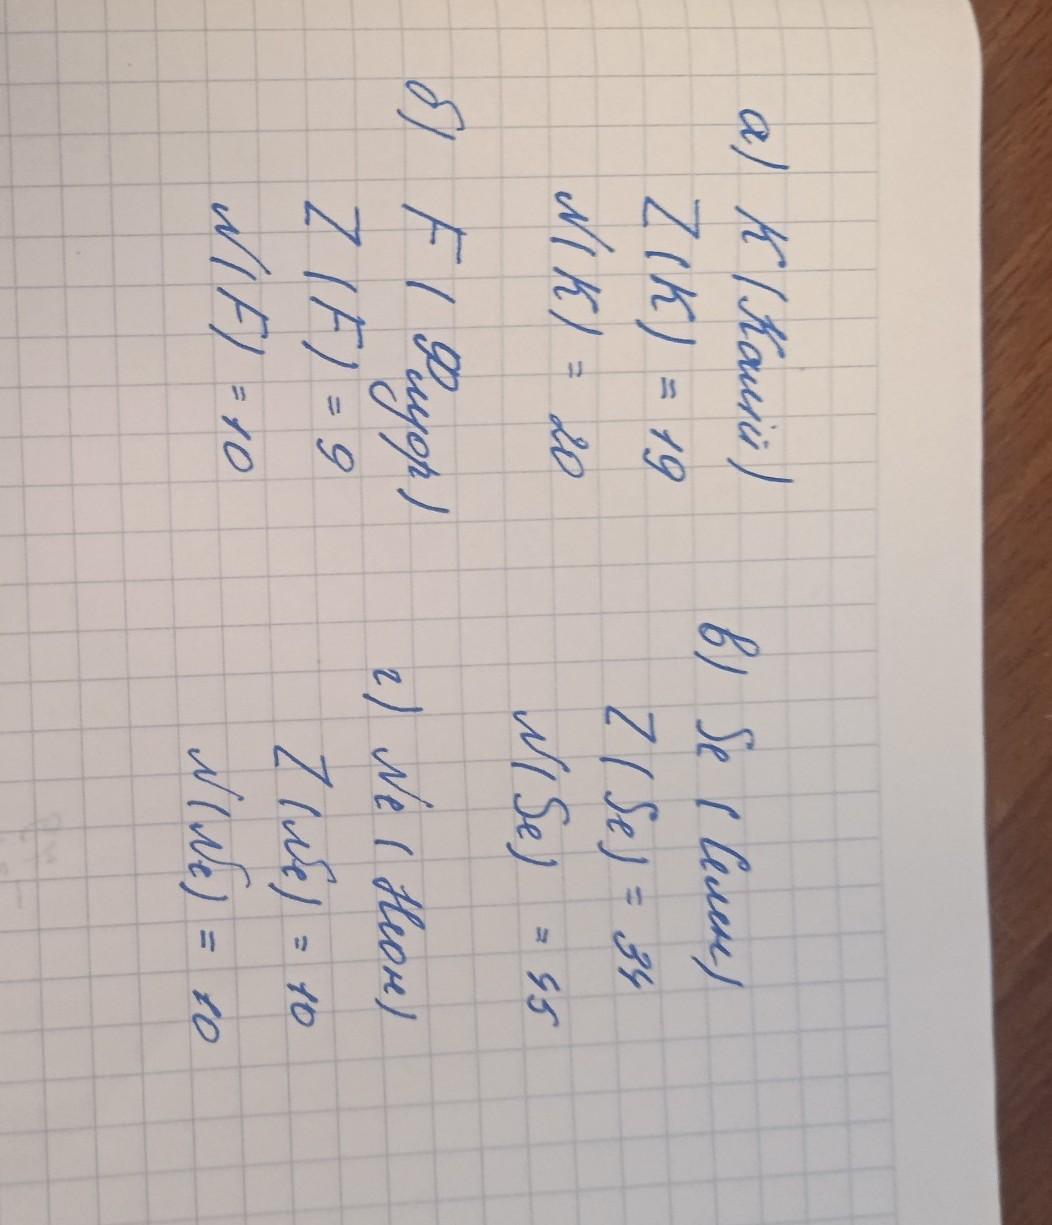 а) K (Калій)
Z (K) = 19
N (K) = 20
б) F ( Флуор)
Z (F) = 9
N (F) = 10
в) Se (Селен)
Z (Se) = 34
N (Se) = 45
г) Ne (Неон)
Z (Ne) = 10
N (Ne) = 10